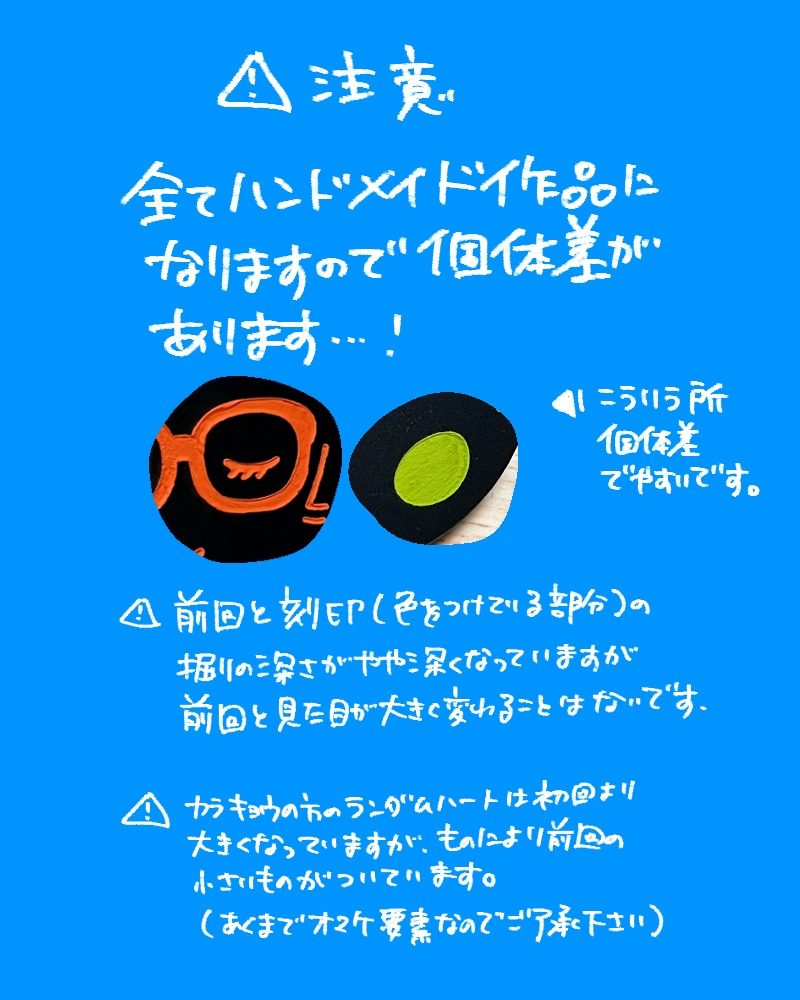 ⚠ 注意
全てハンドメイド作品に
なりますので個体差が
あります…!
◀ こういう所
個体差
でやすいです。
⚠ 前回と刻印(色をつけている部分)の
掘りの深さがやや深くなっていますが
前回と見た目が大きく変わることはないです.
⚠ カラキョウの方のランダムハートは初回より
大きくなっていますが、ものにより前回の
小さいものがついています。
(あくまでオマケ要素なのでご了承下さい)